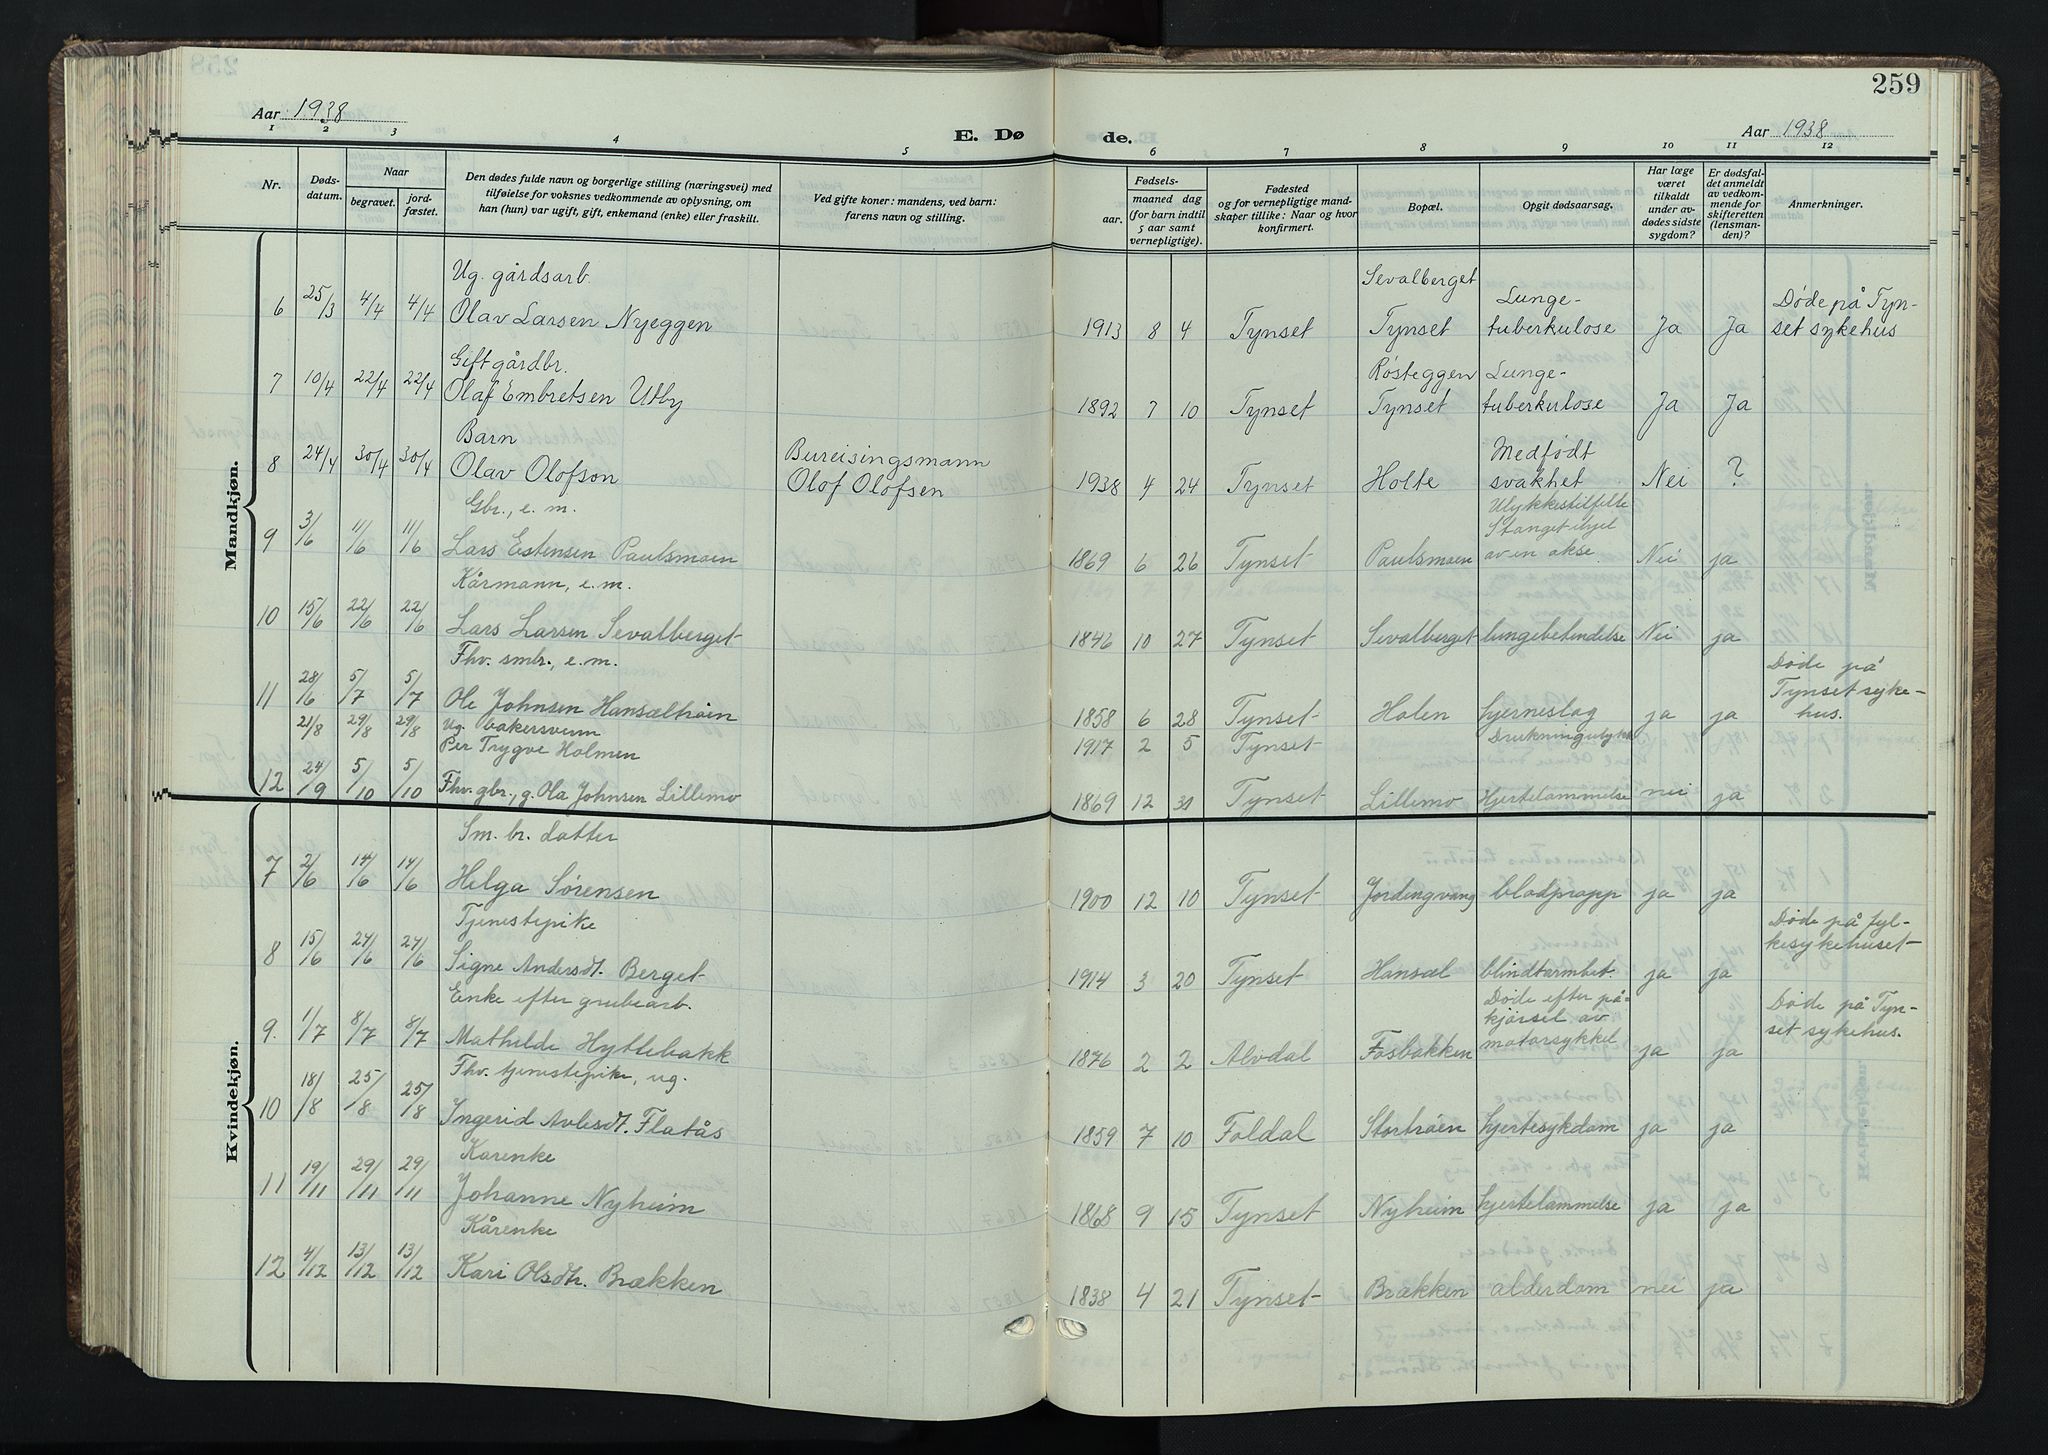 259
Aar 1938
E. Dø
de.
Aar 1938
1 2 3 4 5 6 7 8 9 10 11 12
Nr.
Døds-
datum.
Naar
begravet.
jord-
fæstet.
Den dødes fulde navn og borgerlige stilling (næringsvei) med
tilføielse for voksnes vedkommende av oplysning, om
han (hun) var ugift, gift, enkemand (enke) eller fraskilt.
Ved gifte koner: mandens, ved barn:
farens navn og stilling.
Fødsels-
aar. maaned dag
(for barn indtil
5 aar samt
vernepligtige).
Fødested
og for vernepligtige mand-
skaper tillike: Naar og hvor
konfirmert.
Bopæl.
Opgit dødsaarsag.
Har læge
været
tilkaldt
under av-
dødes sidste
sygdom?
Er dødsfal-
det anmeldt
av vedkom-
mende for
skifteretten
(lensman-
den)?
Anmerkninger.
Mandkjøn.
Ug. gårdsarb. Sevalberget Lunge- Døde på Tyn-
6 25/3 4/4 4/4 Olav Larsen Nyeggen 1913 8 4 Tynset Tynset tuberkulose Ja Ja set sykehus
Gift gårdbr. Røsteggen Lunge-
7 10/4 22/4 22/4 Olaf Embretsen Utby 1892 7 10 Tynset Tynset tuberkulose Ja Ja
Barn Bureisingsmann Medfødt
8 24/4 30/4 30/4 Olav Olofson Olof Olofsen 1938 4 24 Tynset Holte svakhet Nei ?
Gbr., e. m. Ulykkestilfelle
Stanget ihjel
9 3/6 11/6 11/6 Lars Estensen Paulsmoen 1869 6 26 Tynset Paulsmoen av en okse. Nei ja
Kårmann, e. m.
10 15/6 22/6 22/6 Lars Larsen Sevalberget 1846 10 27 Tynset Sevalberget lungebetendelse Nei ja
Fhv. smbr., e. m. Døde på
11 28/6 5/7 5/7 Ole Johnsen Hansæltrøen 1858 6 28 Tynset Holen hjerneslag ja ja Tynset syke-
hus.
21/8 29/8 29/8 Ug. bakersvenn
Per Trygve Holmen 1917 2 5 Tynset Drukningsulykk
12 24/9 5/10 5/10 Fhv. gbr., g. Ola Johnsen Lillemo 1869 12 31 Tynset Lillemo Hjertelammelse nei ja
Kvindekjøn.
Sm. br. datter
7 2/6 14/6 14/6 Helga Sørensen 1900 12 10 Tynset Jordingvang blodpropp ja ja
Tjenestepike Døde på fyl-
kesykehuset
8 15/6 24/6 24/6 Signe Andersdt. Berget 1914 3 20 Tynset Hansæl blindtarmbet. ja ja
Enke efter grubearb. Døde efter på- Døde på Tyn-
kjørsel av set sykehus.
9. 1/7 8/7 8/7 Mathilde Hyttebakk 1876 2 2 Alvdal Fosbakken motorsykkel ja ja
Fhv. tjenestepike, ug.
10 18/8 25/8 25/8 Ingerid Avlesdt. Flatås 1859 7 10 Foldal Stortrøen hjertesykdom ja ja
Kårenke
11 19/11 29/11 29/11 Johanne Nyheim 1868 9 15 Tynset Nyheim hjertelammelse ja ja
Kårenke
12 4/12 13/12 13/12 Kari Olsdtr. Brækken 1838 4 21 Tynset Brækken alderdom nei ja